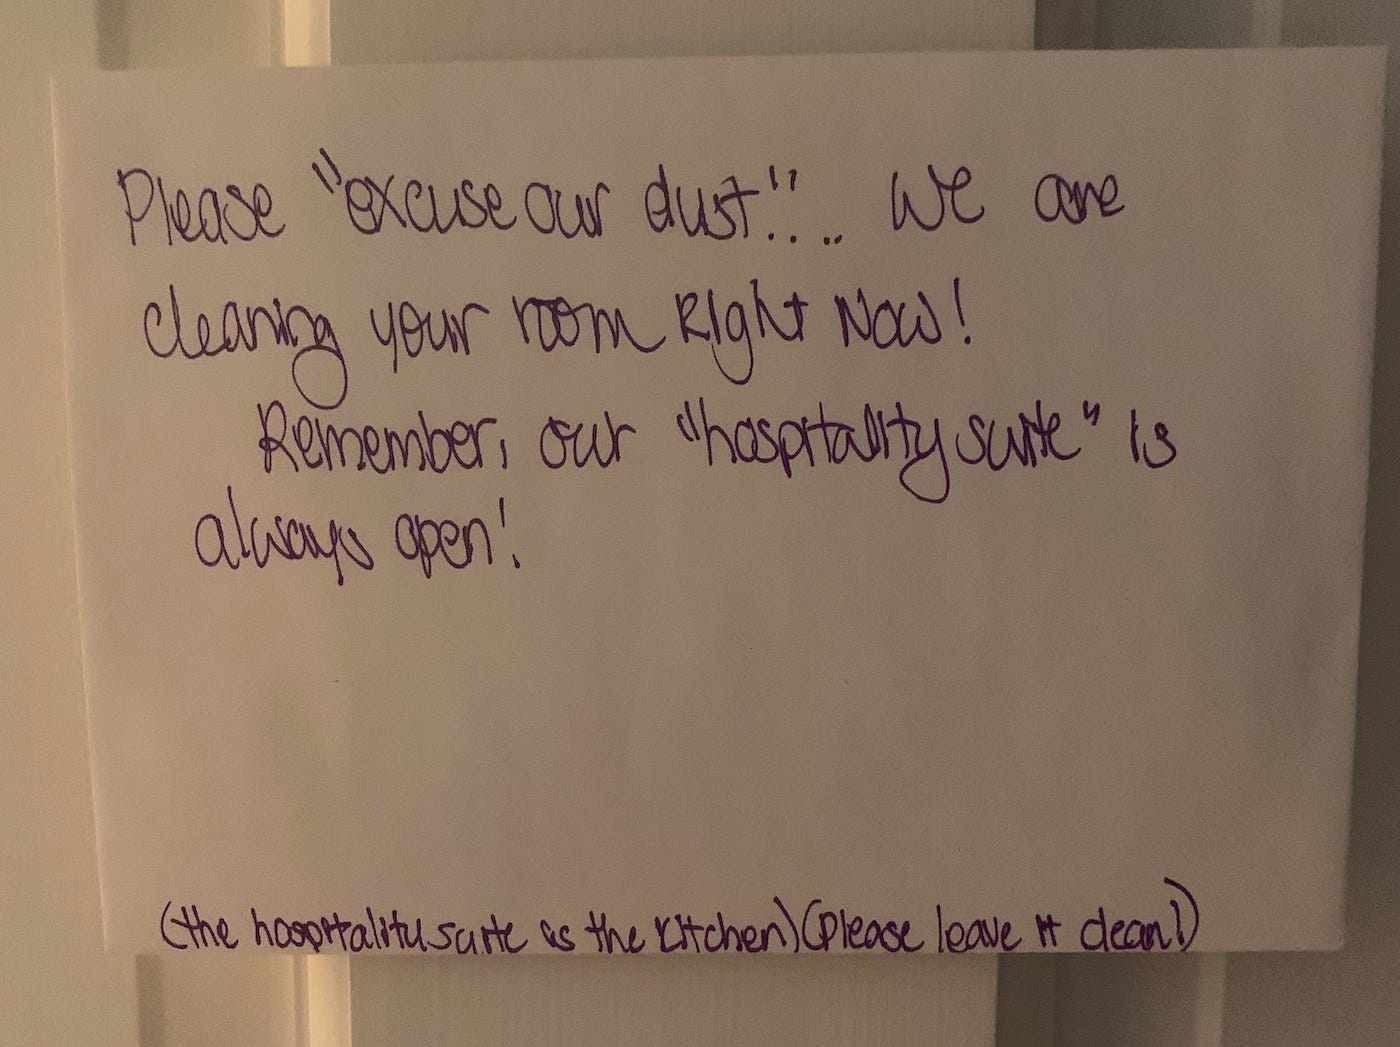 Please "excuse our dust"!.... We are
cleaning your room Right Now!
Remember, our "hospitality suite" is
always open!
(the hospitality suite is the kitchen) (please leave it clean!)